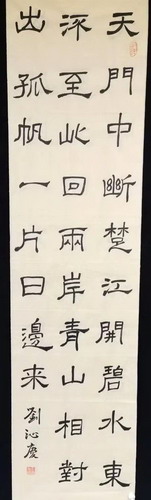 天門中斷楚江開碧水東
流至此回兩岸青山相對
出孤帆一片日邊来
劉沁慶